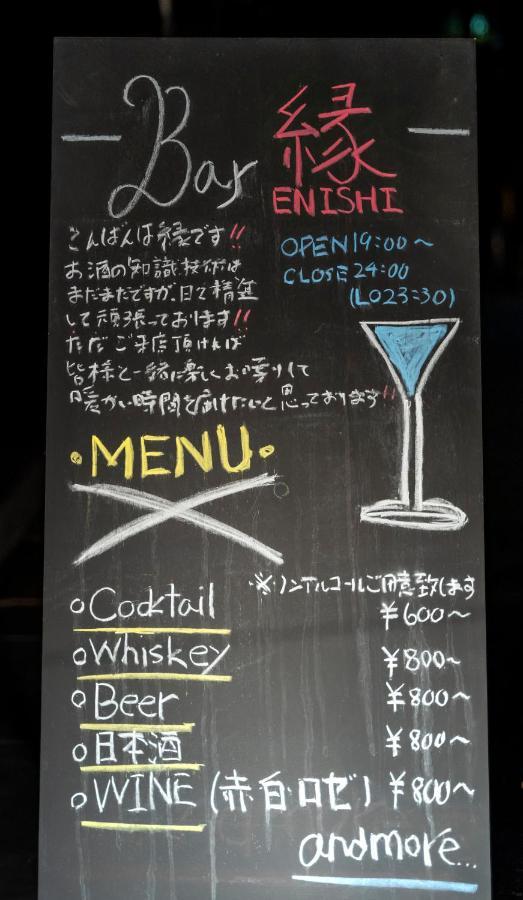 Bar 縁
ENISHI
OPEN 19:00～
CLOSE 24:00
(LO23:30)
こんばんは縁です!!
お酒の知識技術は
まだまだですが、日々精進
して頑張っております!!
ただご来店頂ければ
皆様と一緒に楽しくお喋りして
暖かい時間を届けたいと思っております!!
・MENU・
※ノンアルコールご用意致します
○Cocktail ¥600～
○Whiskey ¥800～
○Beer ¥800～
○日本酒 ¥800～
○WINE (赤・白・ロゼ) ¥800～
andmore...